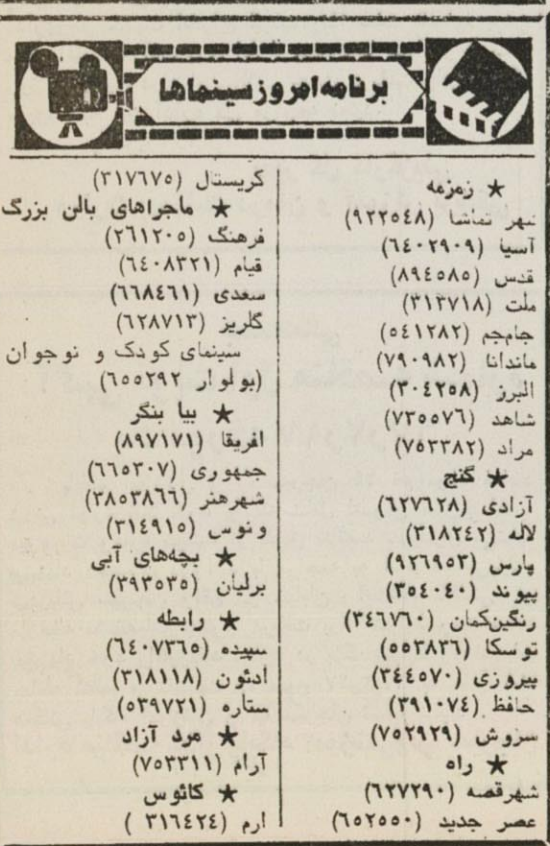 برنامه امروز سینماها
★ زمزمه
شهر تماشا (۹۲۲۵٤۸)
آسیا (٦٤۰۲۹۰۹)
قدس (۸۹٤۵۸۵)
ملت (۳۱۳۷۱۸)
جام‌جم (۵٤۱۲۸۲)
ماندانا (۷۹۰۹۸۲)
البرز (۳۰٤۲۵۸)
شاهد (۷۳۵۵۷٦)
مراد (۷۵۳۳۸۲)
★ گنج
آزادی (٦۲۷٦۲۸)
لاله (۳۱۸۲٤۲)
پارس (۹۲٦۹۵۳)
پیوند (۳۵٤۰٤۰)
رنگین‌کمان (۳٤٦۷٦۰)
توسکا (۵۵۳۸۳٦)
پیروزی (۳٤٤۵۷۰)
حافظ (۳۹۱۰۷٤)
سروش (۷۵۲۹۲۹)
★ راه
شهرقصه (٦۲۷۲۹۰)
عصر جدید (٦۵۲۵۵۰)
کریستال (۳۱۷٦۷۵)
★ ماجراهای بالن بزرگ
فرهنگ (۲٦۱۲۰۵)
قیام (٦٤۰۸۳۲۱)
سعدی (٦٦۸٤٦۱)
گلریز (٦۲۸۷۱۳)
سینمای کودک و نوجوان
(بولوار ٦۵۵۲۹۲)
★ بیا بنگر
افریقا (۸۹۷۱۷۱)
جمهوری (٦٦۵۳۰۷)
شهرهنر (۳۸۵۳۸٦٦)
ونوس (۳۱٤۹۱۵)
★ بچه‌های آبی
برلیان (۳۹۳۵۳۵)
★ رابطه
سپیده (٦٤۰۷۳٦۵)
ادئون (۳۱۸۱۱۸)
ستاره (۵۳۹۷۲۱)
★ مرد آزاد
آرام (۷۵۳۳۱۱)
★ کائوس
ارم (۳۱٦٤۲٤ )